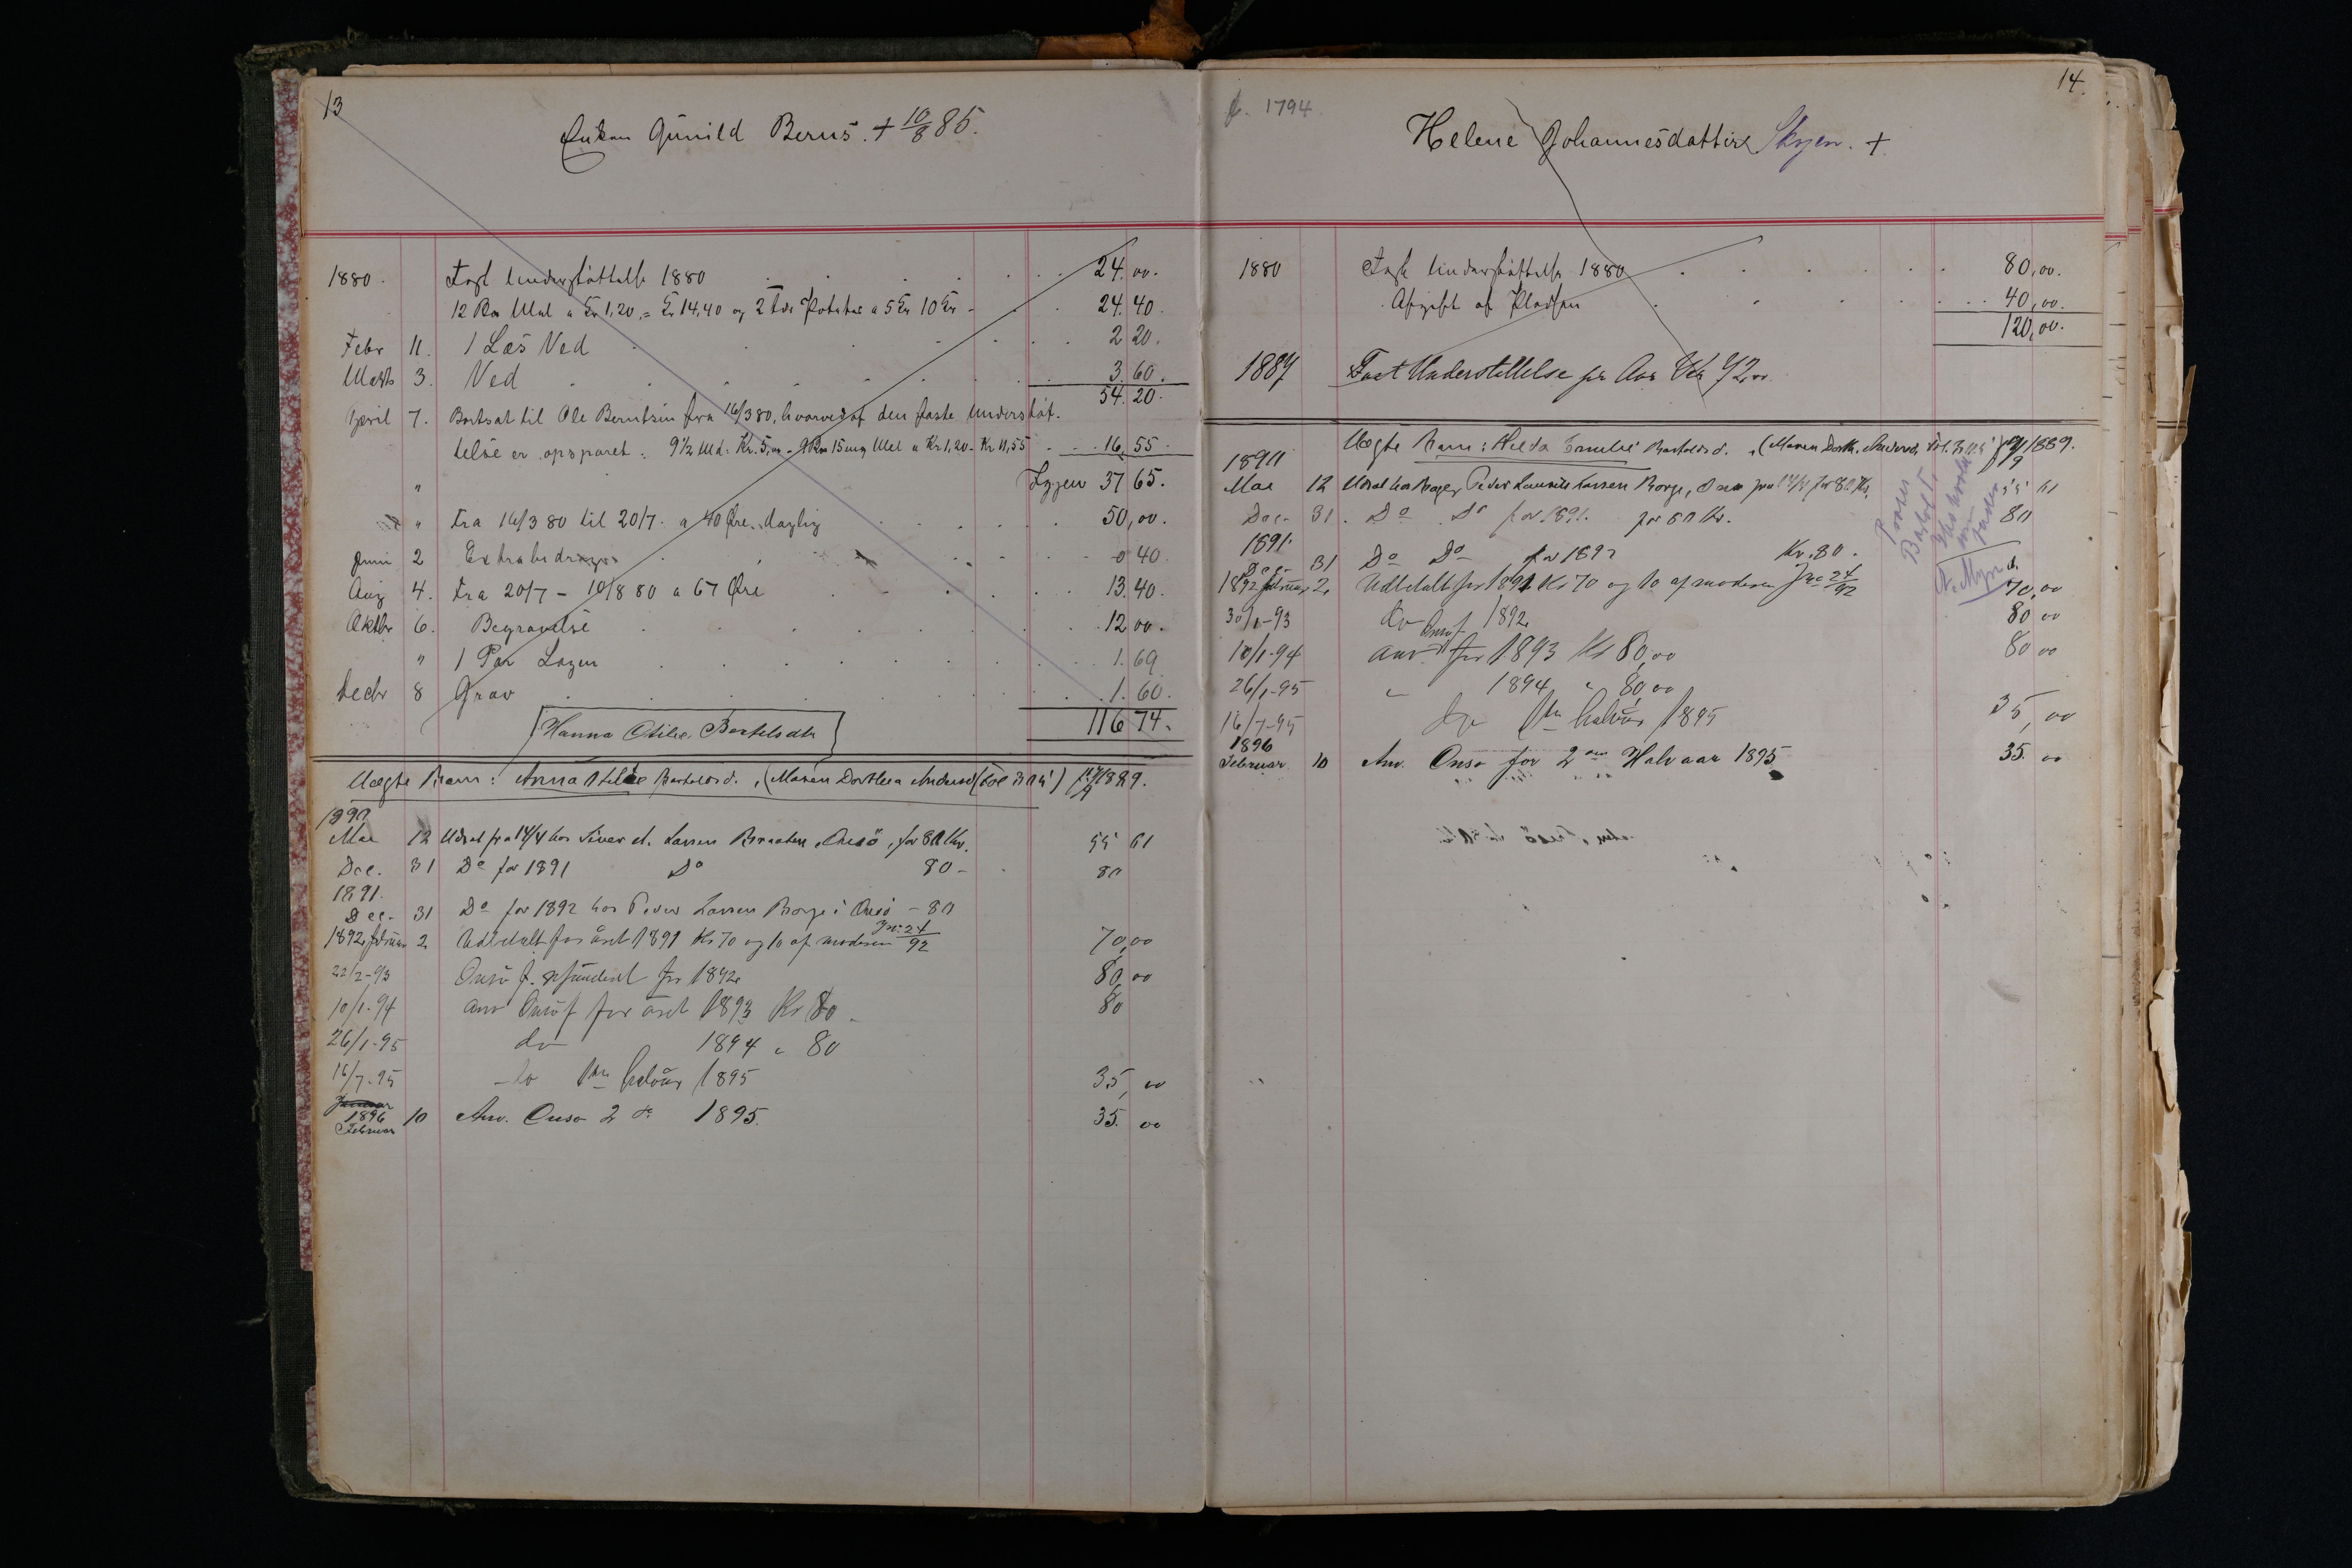 13
Enken Gunild Berns. + 10/8 85.
1880. Fast Understøttelse 1880 24.00.
12 Rm Mel a Kr 1,20 = Kr 14,40 og 2 Tdr Poteter a 5 Kr 10 Kr - 24.40.
Febr 11. 1 Læs Ved 2 20.
Marts 3. Ved 3.60.
54.20.
April 7. Bortsat til Ole Berntsen fra 16/3 80, hvorved af den faste Understøt-
telse er opsparet: 9½ Md. Kr. 5,00 - Mel a Kr 1,20 - Kr 11,55 16,55
" Igjen 37 65.
" Fra 16/3 80 til 20/7 a 40 Øre daglig 50,00.
Juni 2 Extrabidrag 0 40.
Aug 4. Fra 20/7 - 10/8 80 a 67 Øre 13.40.
Oktbr 6. Begravelse 12 00.
" 1 Par Lagen 1.69
Decbr 8 Grav 1.60.
116 74.
Hanna Otilie Bertelsdtr
Uægte Barn: Anna Otilie Bartholdsd., (Maren Dorthea Andersd. 1889.
1890
Mai 12 Udsat fra 14/4 hos Siver A. Larsen Braaten, Onsö, for 80 Kr. 55 61
Dec. 31 Do for 1891 Do 80 - 80
1891.
Dec. 31 Do for 1892 hos Peder Larsen Borge i Onsö - 80
1892 februar 2 Udbetalt for året 1891 Kr 70 og 10 af moderen Jno 24/92 70,00
22/2-93 Onsö f. for 1892 80,00
10/1-94 Anv Onsö f for året 1893 Kr 80 - 80
26/1-95 do 1894 " 80
16/7-95 do 1ste halvår 1895 35,00
1896
Februar 10 Anv. Onsø 2 do 1895. 35.00
1794
14.
Helene Johannesdatter Skyen. +
1880 Fast Understøttelse 1880 80,00.
Afgift af Pladsen 40,00.
120,00.
1887 Fast Understøttelse pr Aar Kr 72,00
Uægte Barn: Hilda Emilie Bartholdsd., (Maren Doroth. Andersd. 1889.
1890
Mai 12 Udsat hos Peder Lauritz Larsen Borge, Onsø fra 14/4 for 80 Kr. 55 61
Dec. 31. Do Do for 1891. for 80 Kr. 80
1891.
Dec. 31 Do Do for 1892 Kr. 80.
1892 februar 2. Udbetalt for 1891 Kr 70 og 10 af moderen Jno 24/92 70,00
30/1-93 do Onsö f 1892 80 00
10/1-94 Anv for 1893 Kr 80,00 80 00
26/1-95 " 1894 " 80,00
16/7-95 do 1ste halvår 1895 35,00
1896
Februar 10 Anv. Onsø for 2den Halvaar 1895 35.00